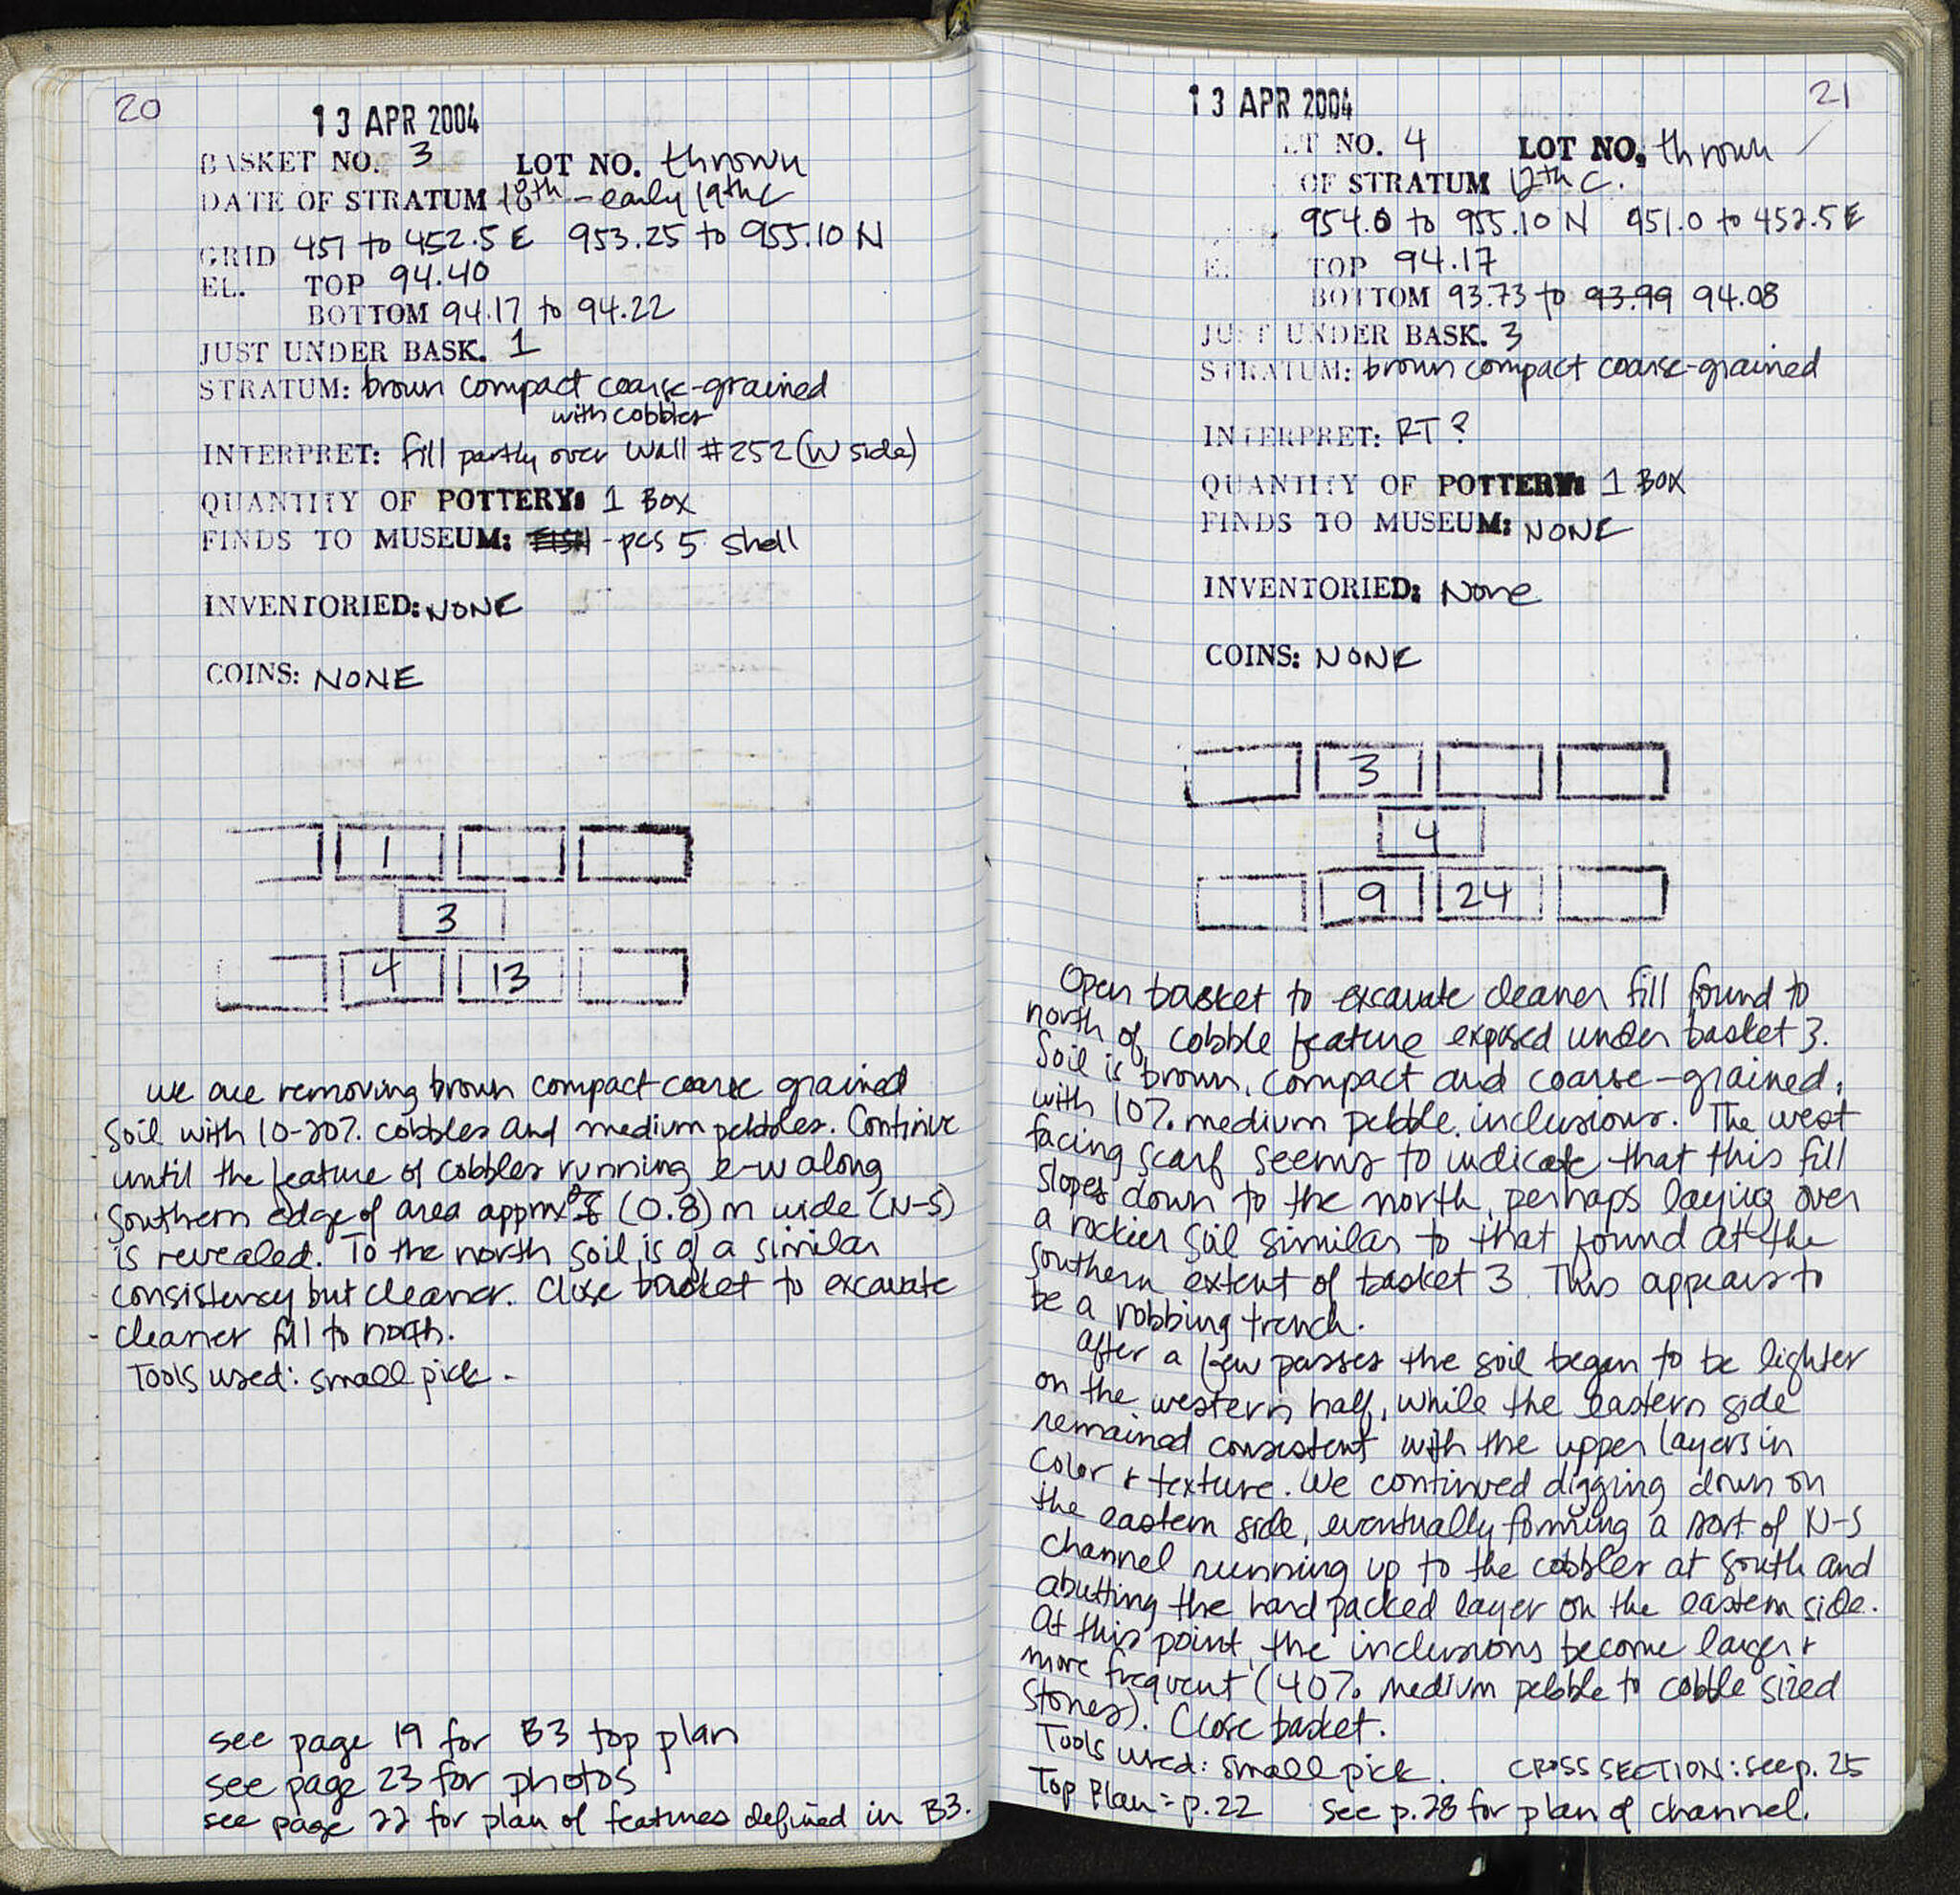 20
13 APR 2004
BASKET NO. 3 LOT NO. thrown
DATE OF STRATUM 18th - early 19th C
GRID 451 to 452.5 E 953.25 to 955.10 N
EL. TOP 94.40
BOTTOM 94.17 to 94.22
JUST UNDER BASK. 1
STRATUM: brown compact coarse-grained
with cobbles
INTERPRET: fill partly over Wall #252 (W side)
QUANTITY OF POTTERY: 1 BOX
FINDS TO MUSEUM: - pcs 5 shell
INVENTORIED: NONE
COINS: NONE
1
3
4 13
We are removing brown compact coarse grained
soil with 10-20% cobbles and medium pebbles. Continue
until the feature of cobbles running e-w along
southern edge of area approx (0.8) m wide (N-S)
is revealed. To the north soil is of a similar
consistency but cleaner. Close basket to excavate
cleaner fill to north.
Tools used: small pick.
see page 19 for B3 top plan
see page 23 for photos
see page 22 for plan of features defined in B3.
21
13 APR 2004
ET NO. 4 LOT NO. thrown
OF STRATUM 12th C.
954.0 to 955.10 N 451.0 to 452.5 E
E. TOP 94.17
BOTTOM 93.73 to 93.99 94.08
JUST UNDER BASK. 3
STRATUM: brown compact coarse-grained
INTERPRET: RT?
QUANTITY OF POTTERY: 1 BOX
FINDS TO MUSEUM: NONE
INVENTORIED: None
COINS: NONE
3
4
9 24
Open basket to excavate cleaner fill found to
north of cobble feature exposed under basket 3.
Soil is brown, compact and coarse-grained,
with 10% medium pebble inclusions. The west
facing scarf seems to indicate that this fill
slopes down to the north, perhaps laying over
a rockier soil similar to that found at the
southern extent of basket 3. This appears to
be a robbing trench.
After a few passes the soil began to be lighter
on the western half, while the eastern side
remained consistent with the upper layers in
color + texture. We continued digging down on
the eastern side, eventually forming a sort of N-S
channel running up to the cobbles at south and
abutting the hard packed layer on the eastern side.
At this point, the inclusions become larger +
more frequent (40% medium pebble to cobble sized
stones). Close basket.
Tools used: small pick. CROSS SECTION: see p. 25
Top Plan = p. 22 see p. 28 for plan of channel.